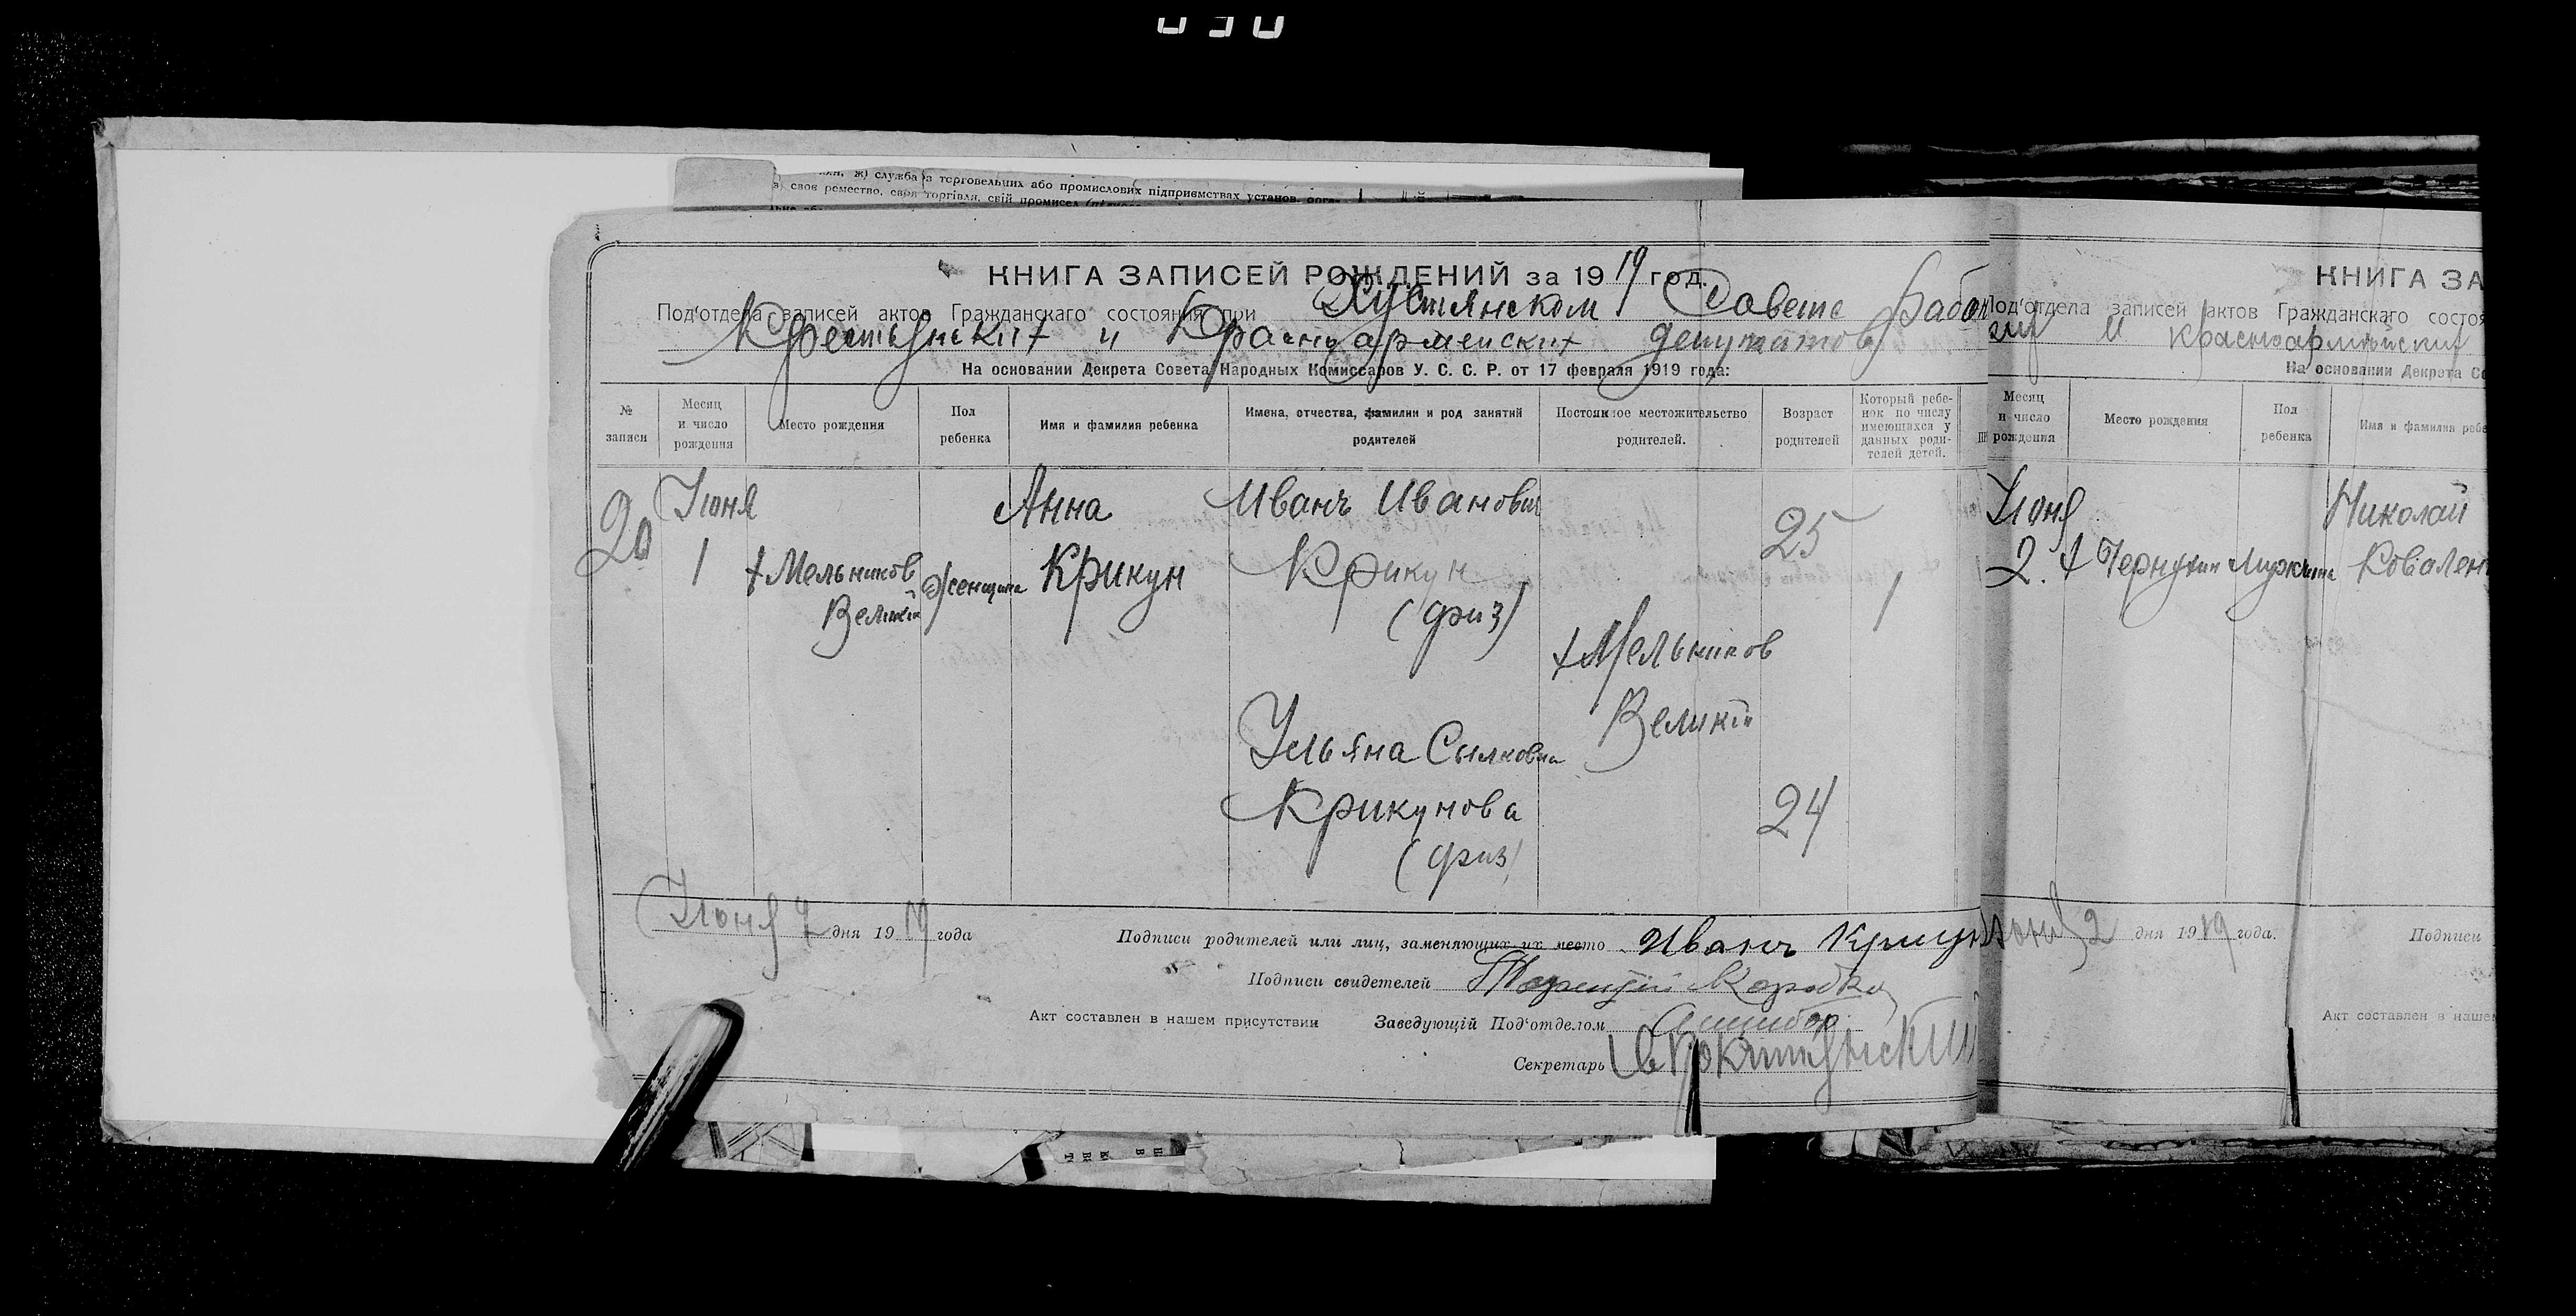 ж) служба в торговельних або промислових підприємствах установ, орга-
своє ремество, своя торгівля, свій промисел
КНИГА ЗАПИСЕЙ РОЖДЕНИЙ за 1919 год.
Под'отдела записей актов Гражданскаго состояния при Хустянском Совете Рабоч
Крестьянских и Красноармейских депутатов
На основании Декрета Совета Народных Комиссаров У. С. С. Р. от 17 февраля 1919 года:
№ записи
Месяц и число рождения
Место рождения
Пол ребенка
Имя и фамилия ребенка
Имена, отчества, фамилии и род занятий родителей
Постоянное местожительство родителей.
Возраст родителей
Который ребе-
нок по числу
имеющихся у
данных роди-
телей детей.
20
Июня
1
х Мельников
Великій
Женщина
Анна
Крикун
Иванъ Иванович
Крикун
(физ)
25
1
х Мельников
Великій
Ульяна
Крикунова
(физ)
24
Июня 2 дня 1919 года
Подписи родителей или лиц, заменяющих их место Иванъ Крикун
Подписи свидетелей Коробка
Акт составлен в нашем присутствии Заведующій Под'отделом
Секретарь
КНИГА ЗА
Под'отдела записей актов Гражданскаго состоя
и Красноармейских
На основании Декрета Со
Месяц и число рождения
Место рождения
Пол ребенка
Имя и фамилия ребе
Июня
2.
х Чернухин
Мужчина
Николай
Ковален
2 дня 1919 года.
Подписи
Акт составлен в наше